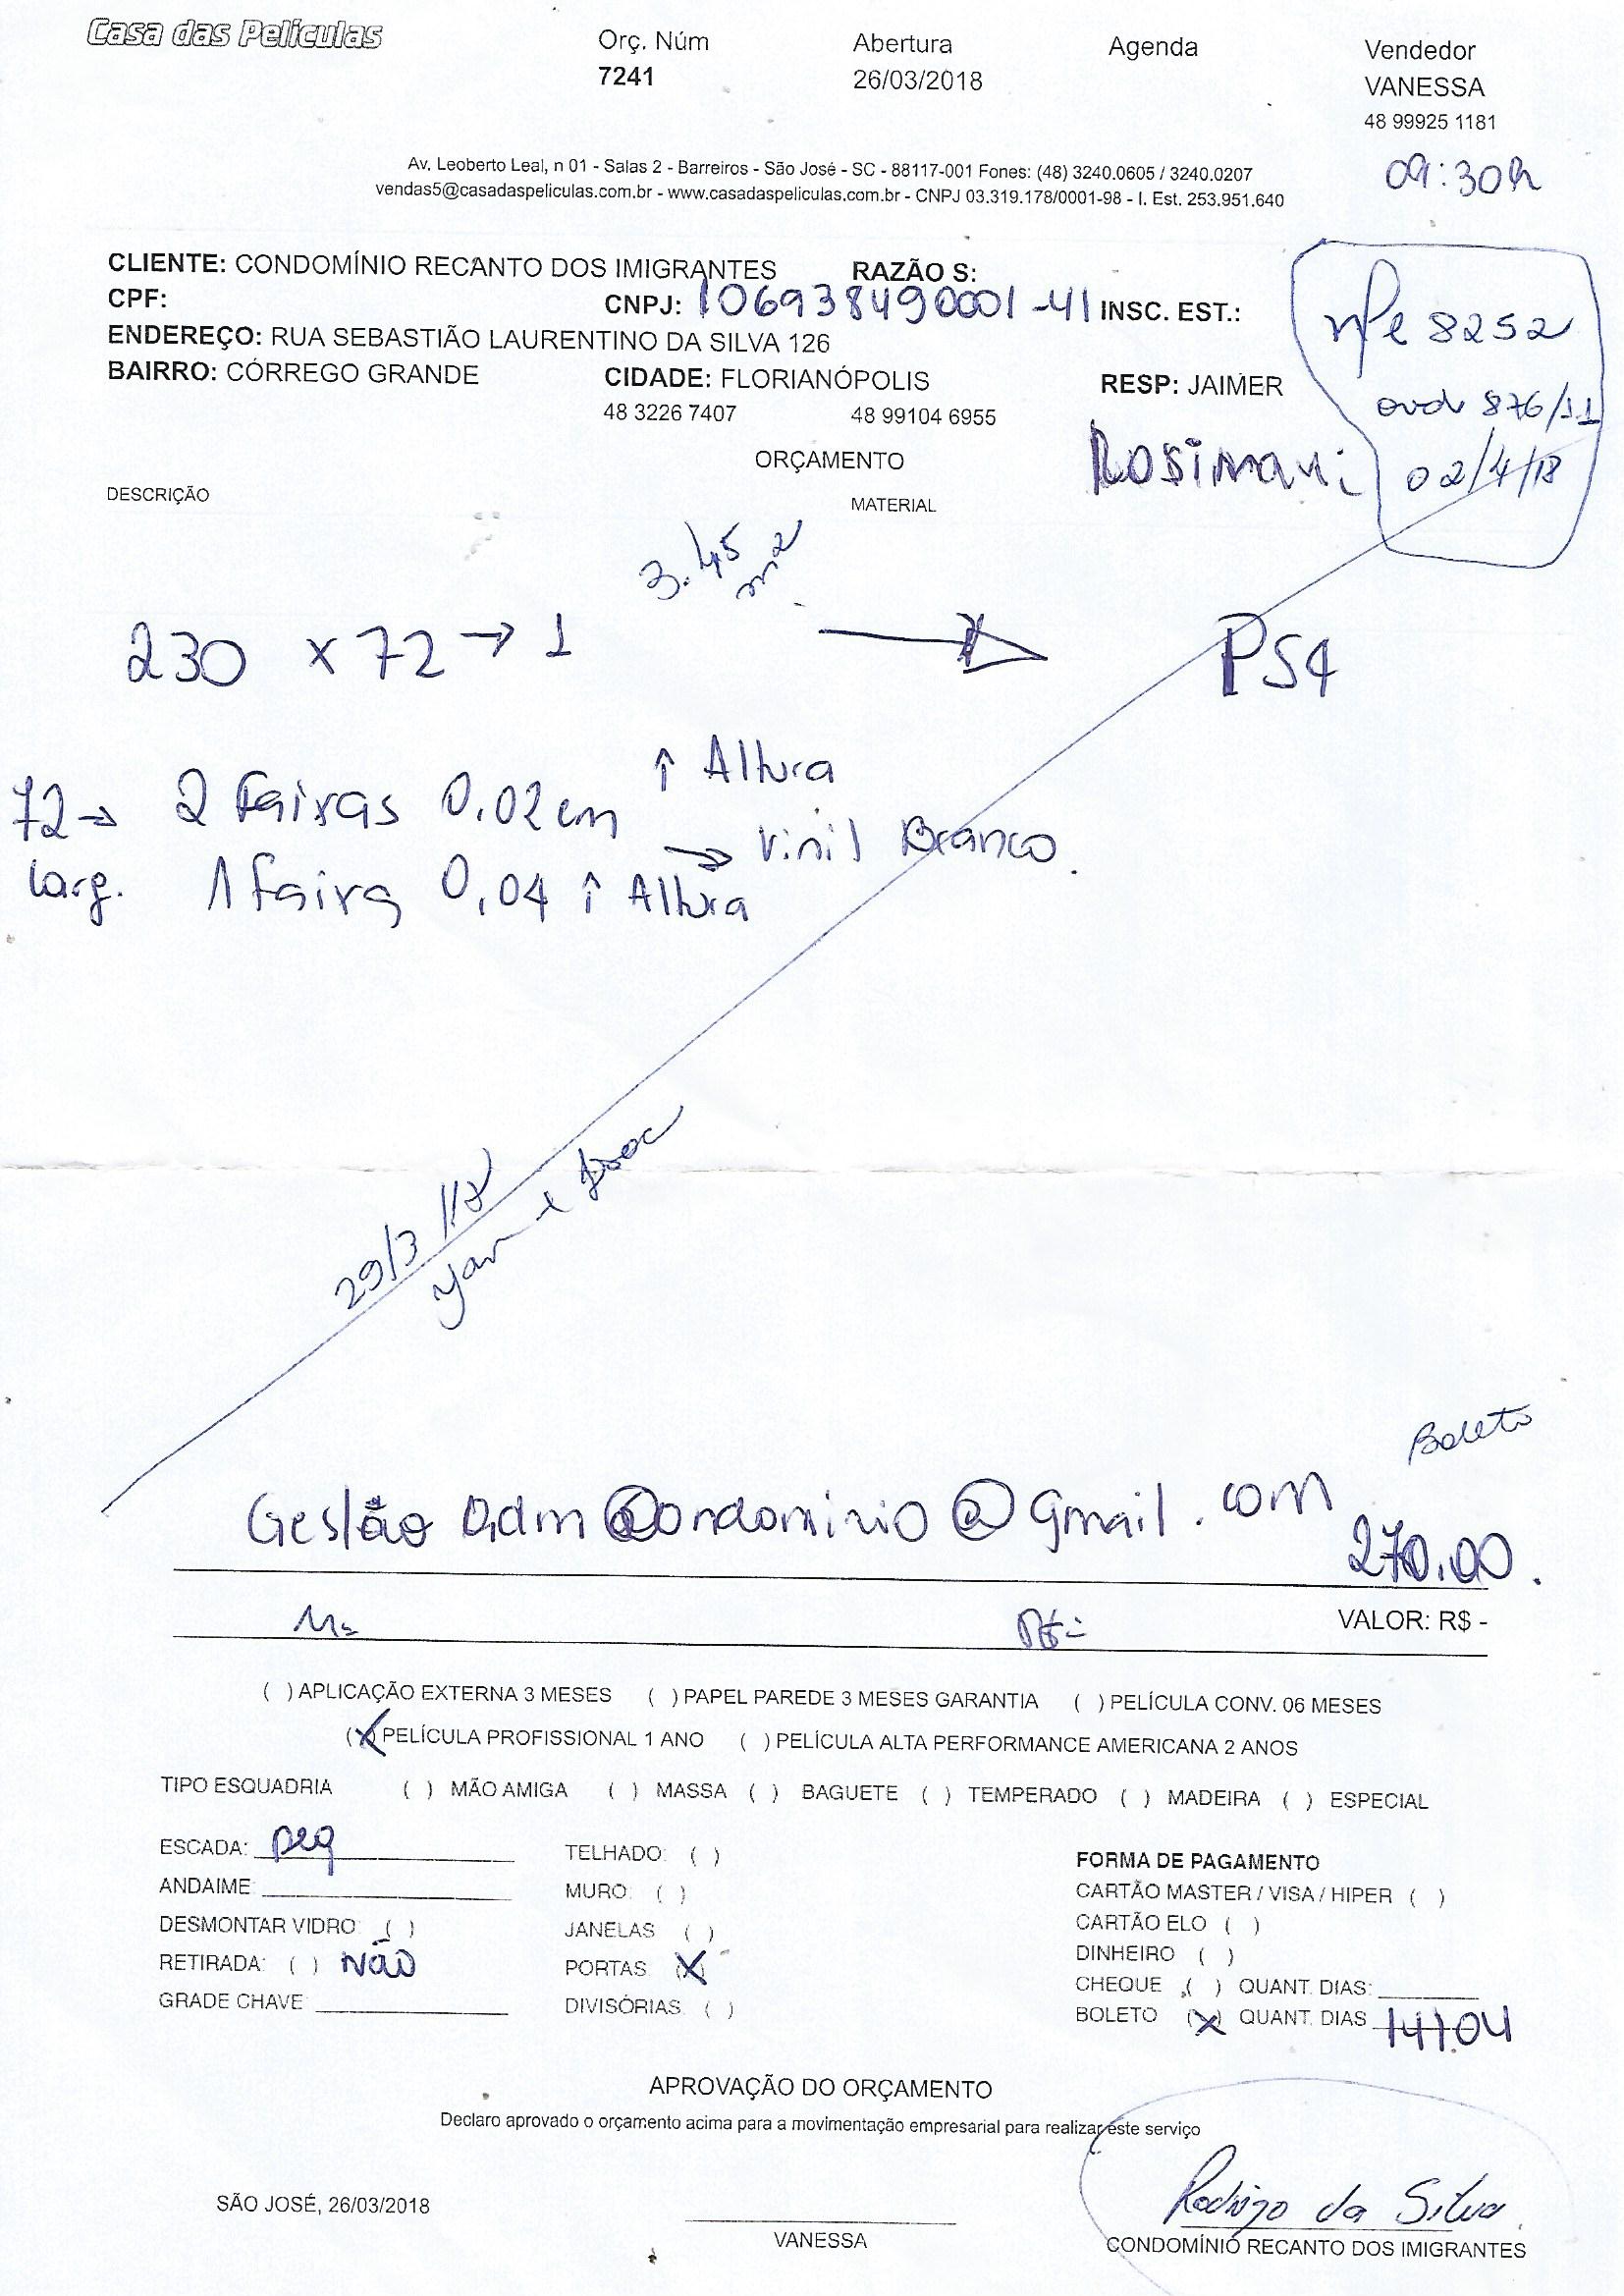 Casa das Películas
Orç. Núm
7241
Abertura
26/03/2018
Agenda
Vendedor
VANESSA
48 99925 1181
Av. Leoberto Leal, n 01 - Salas 2 - Barreiros - São José - SC - 88117-001 Fones: (48) 3240.0605 / 3240.0207
vendas5@casadaspeliculas.com.br - www.casadaspeliculas.com.br - CNPJ 03.319.178/0001-98 - I. Est. 253.951.640
09:30h
CLIENTE: CONDOMÍNIO RECANTO DOS IMIGRANTES RAZÃO S:
CPF: CNPJ: 106938490001-41 INSC. EST.:
ENDEREÇO: RUA SEBASTIÃO LAURENTINO DA SILVA 126
BAIRRO: CÓRREGO GRANDE CIDADE: FLORIANÓPOLIS RESP: JAIMER
48 3226 7407 48 99104 6955
8252
876/11
02/4/18
Rosimari
ORÇAMENTO
DESCRIÇÃO MATERIAL
3.45 m2
230 x 72 → 1 PS4
72 → 2 Faixas 0,02cm ↑ Altura
larg. 1 Faixa 0,04 ↑ Altura
→ Vinil Branco.
29/3/18
Boleto
Gestão adm condominio@gmail.com
270,00.
M=
VALOR: R$ -
( ) APLICAÇÃO EXTERNA 3 MESES ( ) PAPEL PAREDE 3 MESES GARANTIA ( ) PELÍCULA CONV. 06 MESES
(X) PELÍCULA PROFISSIONAL 1 ANO ( ) PELÍCULA ALTA PERFORMANCE AMERICANA 2 ANOS
TIPO ESQUADRIA ( ) MÃO AMIGA ( ) MASSA ( ) BAGUETE ( ) TEMPERADO ( ) MADEIRA ( ) ESPECIAL
ESCADA: peq
ANDAIME:
DESMONTAR VIDRO: ( )
RETIRADA: ( ) NÃO
GRADE CHAVE:
TELHADO: ( )
MURO: ( )
JANELAS ( )
PORTAS (X)
DIVISÓRIAS: ( )
FORMA DE PAGAMENTO
CARTÃO MASTER / VISA / HIPER ( )
CARTÃO ELO ( )
DINHEIRO ( )
CHEQUE ( ) QUANT. DIAS:
BOLETO (X) QUANT. DIAS 14/04
APROVAÇÃO DO ORÇAMENTO
Declaro aprovado o orçamento acima para a movimentação empresarial para realizar este serviço
SÃO JOSÉ, 26/03/2018
VANESSA
Rodrigo da Silva
CONDOMÍNIO RECANTO DOS IMIGRANTES